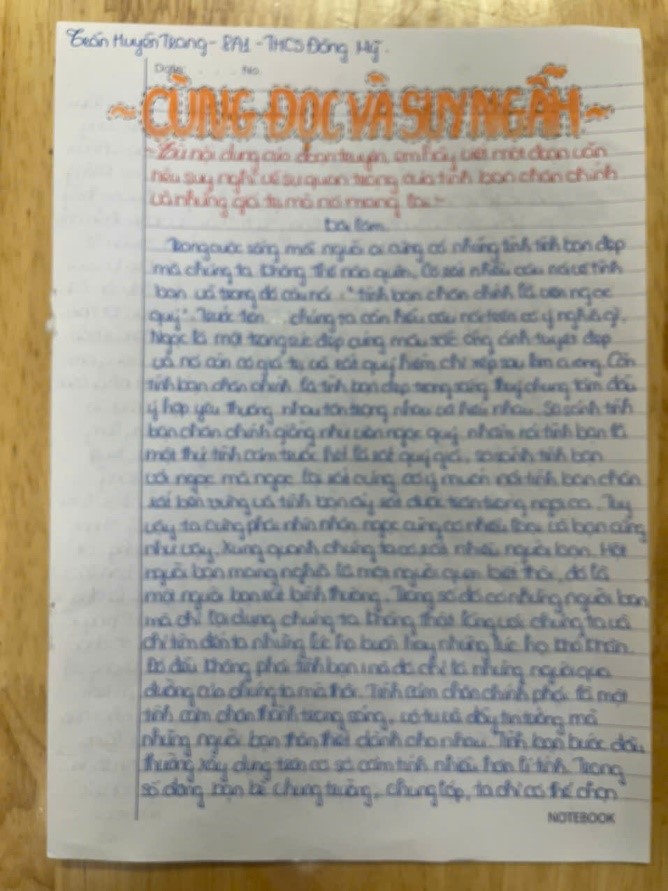 Trần Huyền Trang - 8A1 - THCS Đông Mỹ.
Date: . . . . No.
~ CÙNG ĐỌC VÀ SUY NGẪM ~
- Từ nội dung của đoạn truyện, em hãy viết một đoạn văn
nêu suy nghĩ về sự quan trọng của tình bạn chân chính
và những giá trị mà nó mang lại -
Bài làm
Trong cuộc sống mỗi người ai cũng có những tình bạn đẹp
mà chúng ta không thể nào quên. Có rất nhiều câu nói về tình
bạn và trong đó câu nói: "tình bạn chân chính là viên ngọc
quý". Trước tiên chúng ta cần hiểu câu nói trên có ý nghĩa gì.
Ngọc là một trang sức đẹp cùng màu sắc óng ánh tuyệt đẹp
và nó còn có giá trị và rất quý hiếm chỉ xếp sau kim cương. Còn
tình bạn chân chính là tình bạn đẹp trong sáng thuỷ chung tâm đầu
ý hợp yêu thương nhau tôn trọng nhau và hiểu nhau. So sánh tình
bạn chân chính giống như viên ngọc quý, nhằm nói tình bạn là
một thứ tình cảm trước hết là rất quý giá, so sánh tình bạn
với ngọc mà ngọc lại rất cứng có ý muốn nói tình bạn chân
rất bền vững và tình bạn ấy rất được trân trọng ngợi ca. Tuy
vậy ta cũng phải nhìn nhận ngọc cũng có nhiều loại và bạn cũng
như vậy. Xung quanh chúng ta có rất nhiều người bạn. Một
người bạn mang nghĩa là một người quen biết thôi, đó là
một người bạn rất bình thường. Trong số đó có những người bạn
mà chỉ lợi dụng chúng ta không thật lòng với chúng ta và
chỉ tìm đến ta những lúc họ buồn hay những lúc họ khó khăn
Đó đều không phải tình bạn mà đó chỉ là những người qua
đường của chúng ta mà thôi. Tình cảm chân chính phải là một
tình cảm chân thành trong sáng, vô tư và đầy tin tưởng mà
những người bạn thân thiết dành cho nhau. Tình bạn bước đầu
thường xây dựng trên cơ sở cảm tính nhiều hơn lí tính. Trong
số đông bạn bè chung trường, chung lớp, ta chỉ có thể chọn
NOTEBOOK